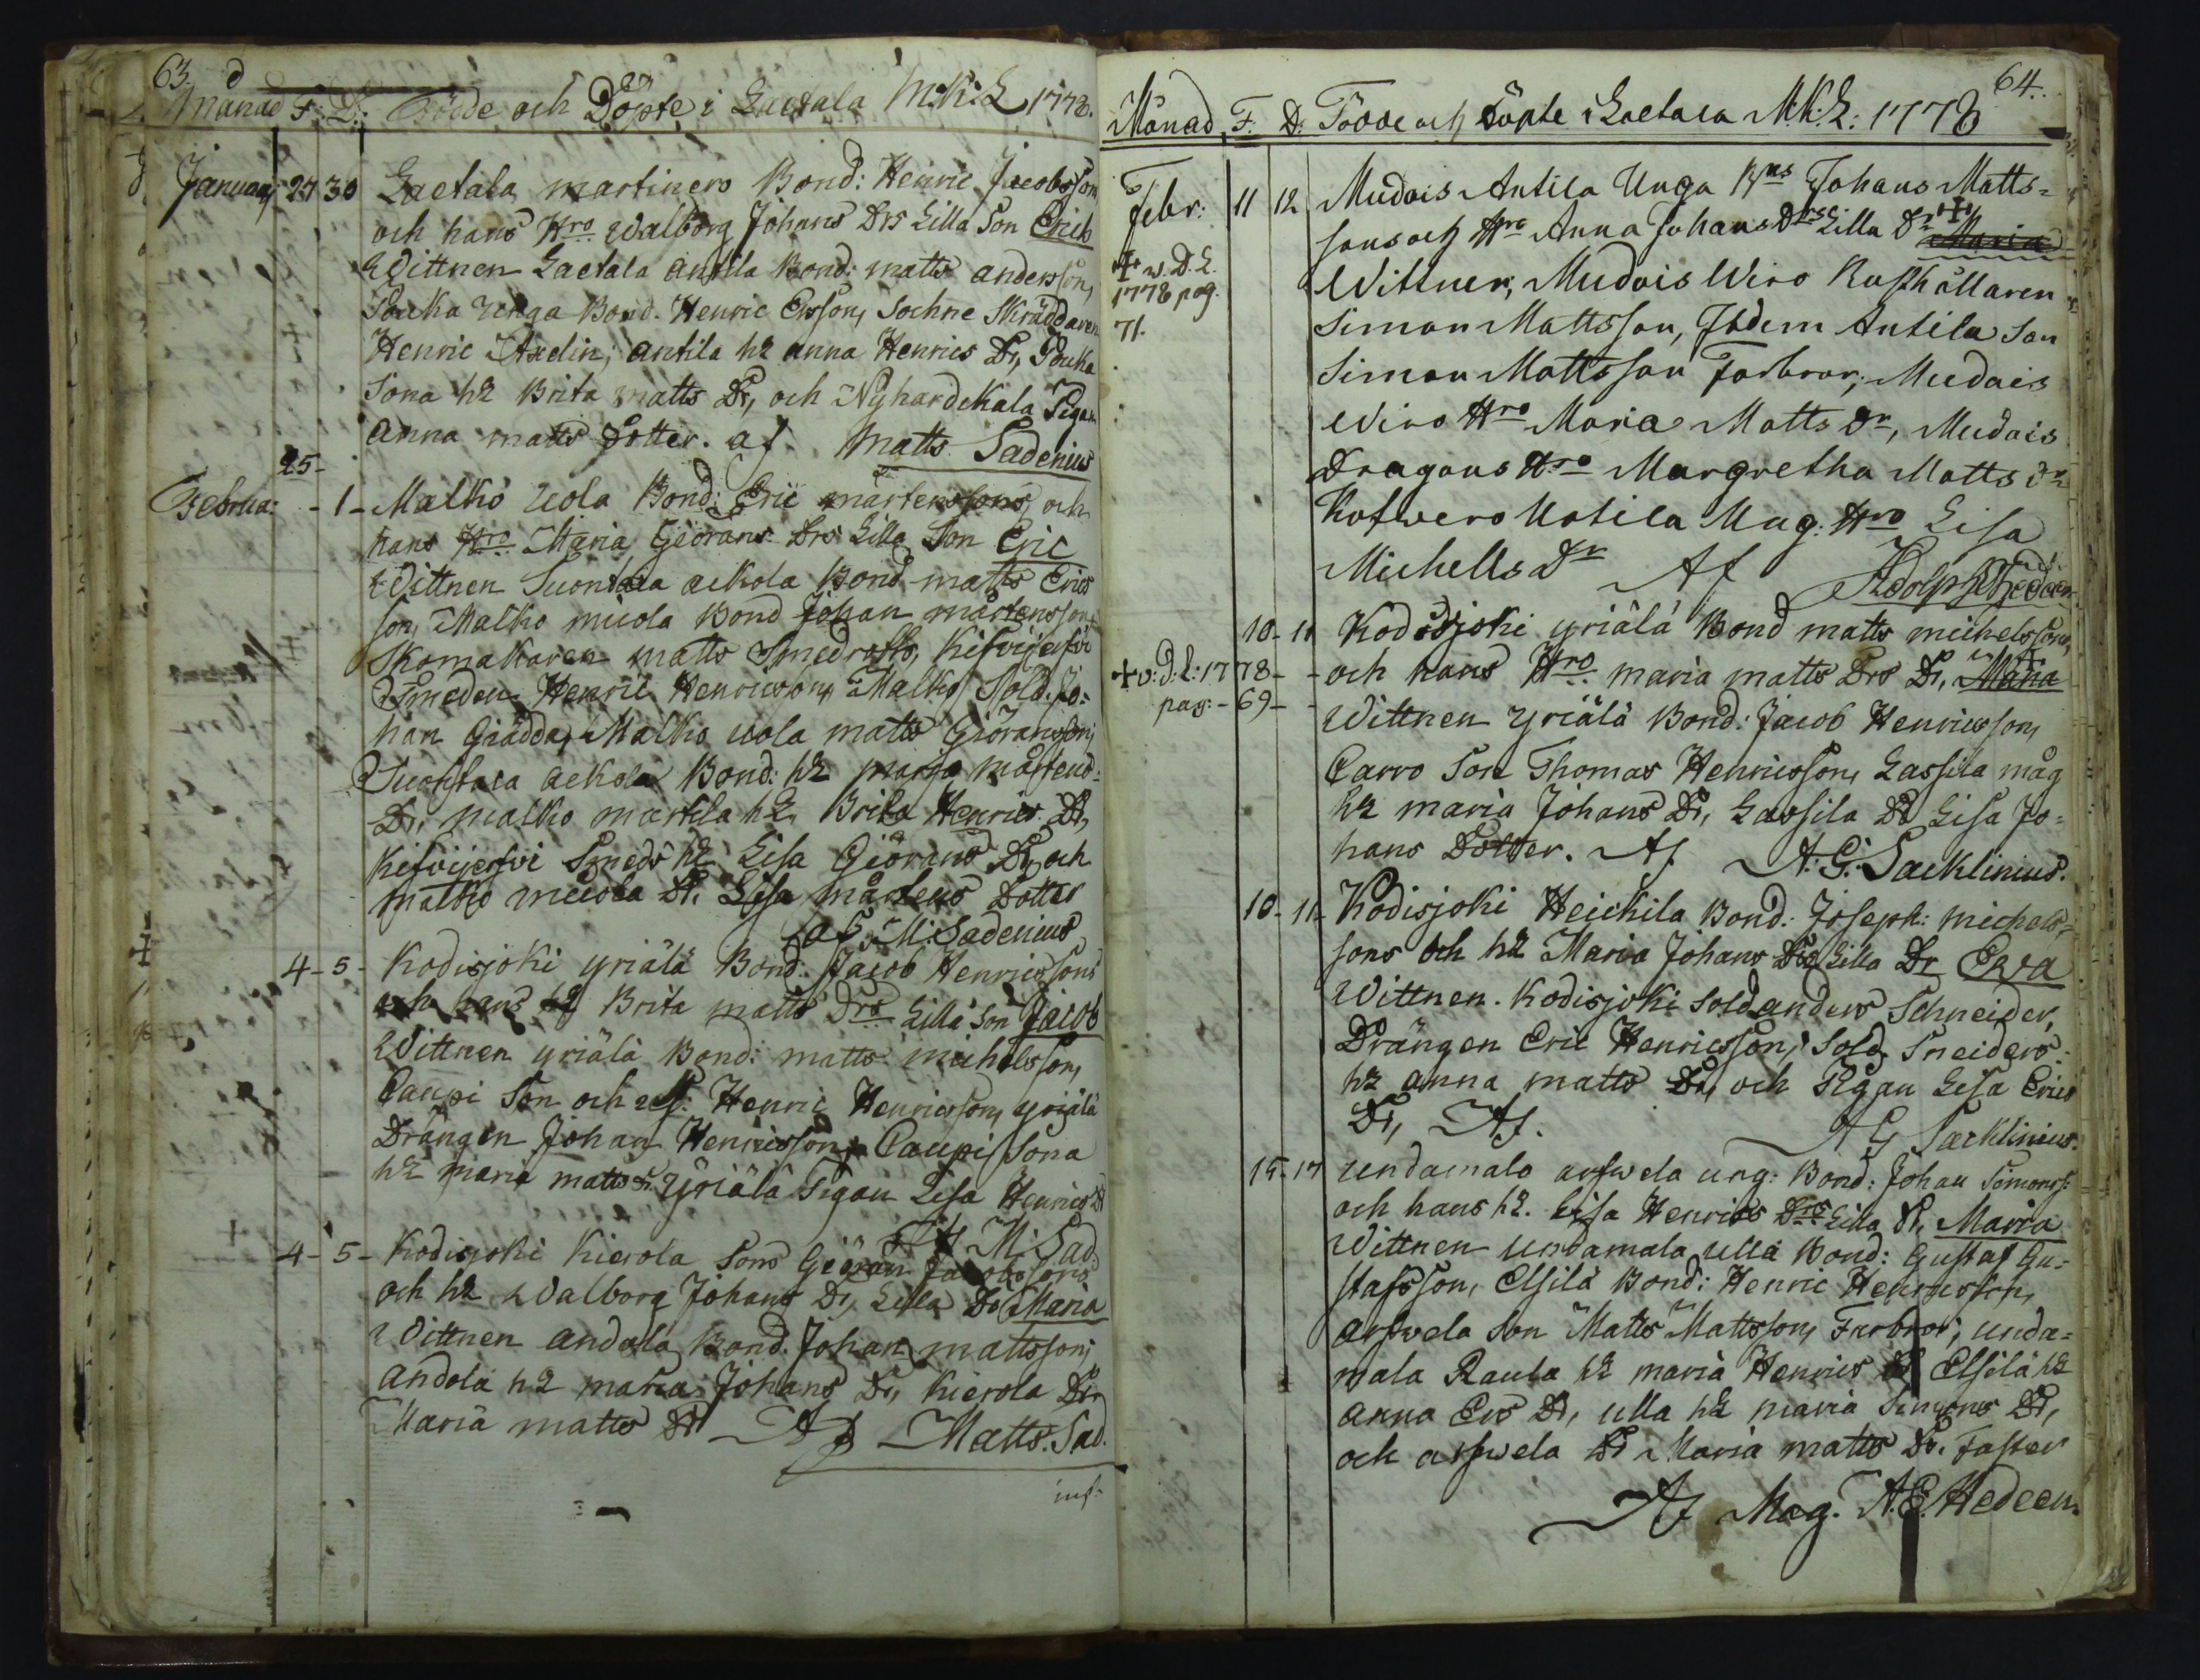 63.
Månad F: D: Födde och Döpte i Laetala M:K:L 1778.
January 27 30 Laetala martinero Bond: Henric Jacobsson
och hans Hro Walborg Johans Drs Lilla Son Erich
Wittnen Laetala antila Bond: matts andersson,
Souka Unga Bond. Henric Ersson, Sochne Skräddaren
Henric Axelin; antila h2 anna Henrics Dr, Souka
Sona h2 Brita matts Dr, och Nyhardekala Pigan
anna matts Dotter. af Matts Sadenius
25-
Februa: - 1 - Malko Uola Bond: Eric mårtenssons och
hans Hro Maria Geörans Drs Lilla Son Eric
Wittnen Suontaca aekola Bond matts Erics
son, Malko micola Bond Johan mårtensson
Skomakaren matts Smedroth, Kifvijerfvi
Smeden Henric Henricsson, Malko Sold. Jo:
han Giädda, Malko uola matts Giöransson;
Suontaca aekola Bond: h2 marja mårtens
Dr, malko martila h2 Brita Henrics Dr,
Kifvijerfvi Smeds h2 Lisa Giörans Dr, och
malko micola Dr. Lisa mårtens Dotter
af M: Sadenius
4 - 5 - Kodisjoki yriälä Bond: Jacob Henricssons
och hans h2 Brita matts Drs Lilla Son Jacob
Wittnen yriälä Bond: matts michelsson,
Caupi Son och Henric Henricsson, yriälä
Drängen Johan Henricsson, Caupi Sona
h2 maria matts Dr. Yriälä Pigan Lisa Henrics Dr
Af M: Sad.
4 - 5 - Kodisjoki Kierola Sons Giöran Jacobssons
och h2 Walborg Johans Dr, Lilla Dr Maria
Wittnen andola Bond. Johan mattsson;
andola h2 maria Johans Dr, Kierola Dr
Maria matts Dr Af Matts. Sad.
64.
Månad F. D. Födde och Döpte i Laetala M.K.L: 1778
Febr: 11 12 Mudais Antila Unga Bns Johans Matts=
sons och Hro Anna Johans Drs Lilla Dr Maria
+ v. D. L.
1778 pag.
71.
Wittner, Mudais Wiro Rusthållaren
Simon Mattsson, Ibdem Antila Son
Simon Mattsson Farbror; Mudais
Wiro Hro Maria Matts Dr, Mudais
Dragons Hro Margretha Matts Dr
Kofwero Uotila Mag. Hro Lisa
Michells Dr Af Adolph Hedeen
10 - 11 Kodisjoki yriälä Bond matts michelssons,
+ v: D: L: 1778 -
pag: - 69 -
och hans Hro maria matts Drs Dr, Maria
Wittnen yriälä Bond: Jacob Henricsson,
Carro Son Thomas Henricsson, Lassila måg
h2 maria Johans Dr, Lassila Dr Lisa Jo=
hans Dotter. Af A: G: Sacklinius.
10 - 11 - Kodisjoki Heickila Bond: Joseph: michels=
sons och h2 Maria Johans Drs Lilla Dr Ewa
Wittnen. Kodisjoki Sold anders Schneider,
Drängen Eric Henricsson, Sold Sneiders
h2 anna matts Dr, och Pigan Lisa Erics
Dr, Af. A G Sacklinius.
15 - 17 undamalo arfwela ung: Bond: Johan Simons:
och hans h2. Lisa Henrics Drs Lilla Dr, Maria
Wittnen undamala ulla Bond: Gustaf Gu=
stafsson, Elsilä Bond: Henric Henricsson,
arfwela Son Matts Mattsson, Farbror; unda=
mala Raula h2 maria Henrics Dr Elsilä h2
anna Ers Dr, ulla h2 maria Simons Dr,
och arfwela Dr Maria matts Dr. Faster
Af Mag. A. E. Hedeen.